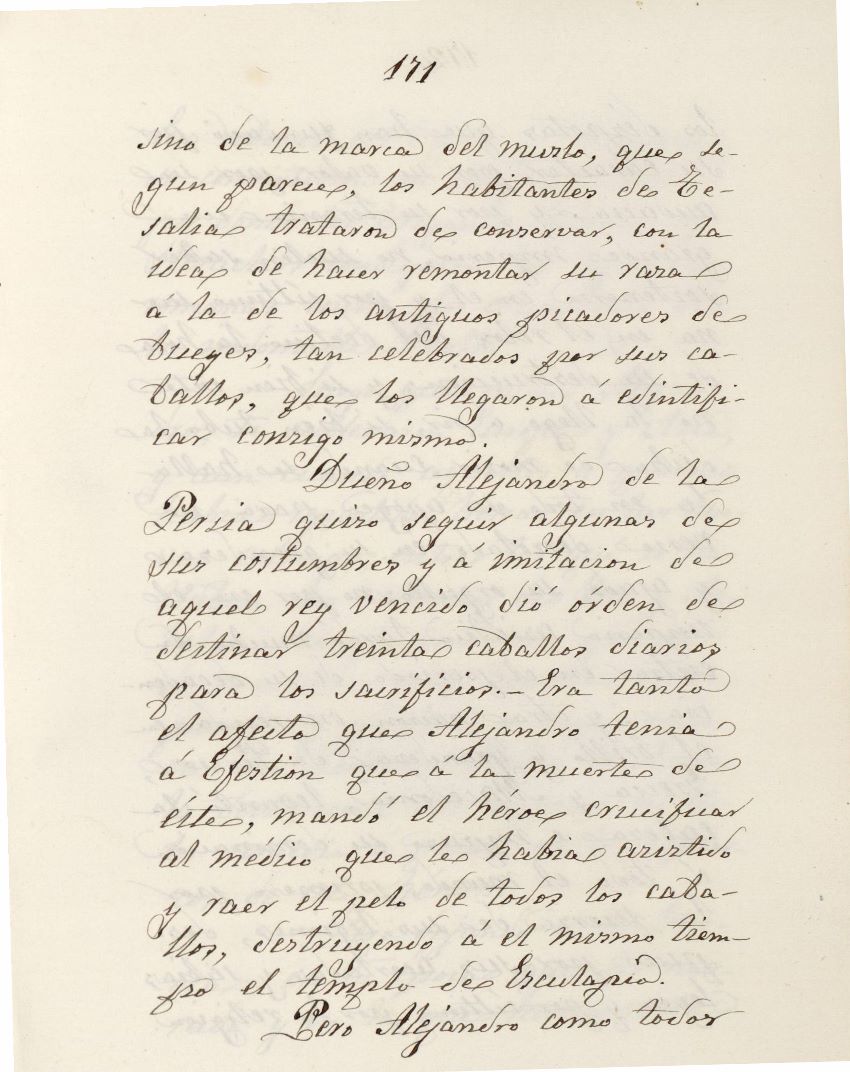 171
sino de la marca del muslo, que se-
gun parece, los habitantes de Te-
salia trataron de conservar, con la
idea de hacer remontar su raza
a la de los antiguos picadores de
bueyes, tan celebrados por sus ca-
ballos, que los llegaron á edintifi-
car consigo mismo.
Dueño Alejandro de la
Persia quiso seguir algunas de
sus costumbres y á imitacion de
aquel rey vencido dió órden de
destinar treinta caballos diarios,
para los sacrificios.- Era tanto
el afecto que Alejandro tenia
á Efestion que á la muerte de
éste, mandó el héroe crucificar
al médico que le habia asistido
y raer el pelo de todos los caba-
llos, destruyendo á el mismo tiem-
po el templo de Esculapio.
Pero Alejandro como todos